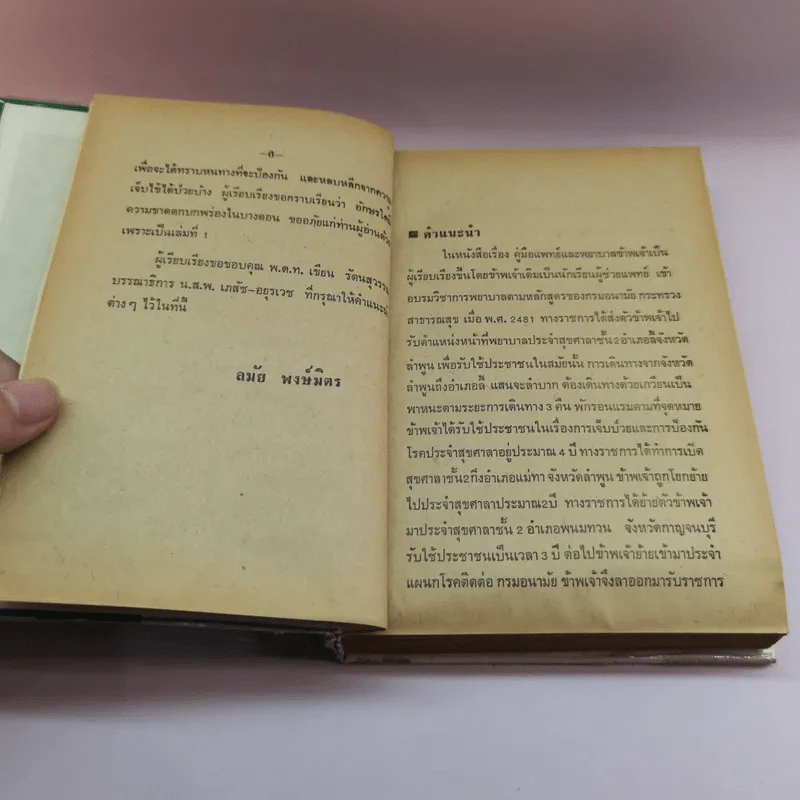 –๘–
เพื่อจะได้ทราบหนทางที่จะป้องกัน และหลบหลีกจากความ
เจ็บไข้ได้ป่วยบ้าง ผู้เรียบเรียงขอกราบเรียนว่า อักษรใด
ความขาดตกบกพร่องในบางตอน ขออภัยแก่ท่านผู้อ่านด้วย
เพราะเป็นเล่มที่ 1
ผู้เรียบเรียงขอขอบคุณ พ.ต.ท. เขียน รัตนสุวรรณ
บรรณาธิการ น.ส.พ. เภสัช-อยุรเวช ที่กรุณาให้คำแนะนำ
ต่างๆ ไว้ในที่นี้
ลมัย พงษ์มิตร
คำแนะนำ
ในหนังสือเรื่อง คู่มือแพทย์และพยาบาลข้าพเจ้าเป็น
ผู้เรียบเรียงขึ้นโดยข้าพเจ้าเดิมเป็นนักเรียนผู้ช่วยแพทย์ เข้า
อบรมวิชาการพยาบาลตามหลักสูตรของกรมอนามัย กระทรวง
สาธารณสุข เมื่อ พ.ศ. 2481 ทางราชการได้ส่งตัวข้าพเจ้าไป
รับตำแหน่งหน้าที่พยาบาลประจำสุขศาลาชั้น 2 อำเภอลี้จังหวัด
ลำพูน เพื่อรับใช้ประชาชนในสมัยนั้น การเดินทางจากจังหวัด
ลำพูนถึงอำเภอลี้ แสนจะลำบาก ต้องเดินทางด้วยเกวียนเป็น
พาหนะตามระยะการเดินทาง 3 คืน พักรอนแรมตามที่จุดหมาย
ข้าพเจ้าได้รับใช้ประชาชนในเรื่องการเจ็บป่วยและการป้องกัน
โรคประจำสุขศาลาอยู่ประมาณ 4 ปี ทางราชการได้ทำการเปิด
สุขศาลาชั้น2กิ่งอำเภอแม่ทา จังหวัดลำพูน ข้าพเจ้าถูกโยกย้าย
ไปประจำสุขศาลาประมาณ2ปี ทางราชการได้ย้ายตัวข้าพเจ้า
มาประจำสุขศาลาชั้น 2 อำเภอพนมทวน จังหวัดกาญจนบุรี
รับใช้ประชาชนเป็นเวลา 3 ปี ต่อไปข้าพเจ้าย้ายเข้ามาประจำ
แผนกโรคติดต่อ กรมอนามัย ข้าพเจ้าจึงลาออกมารับราชการ